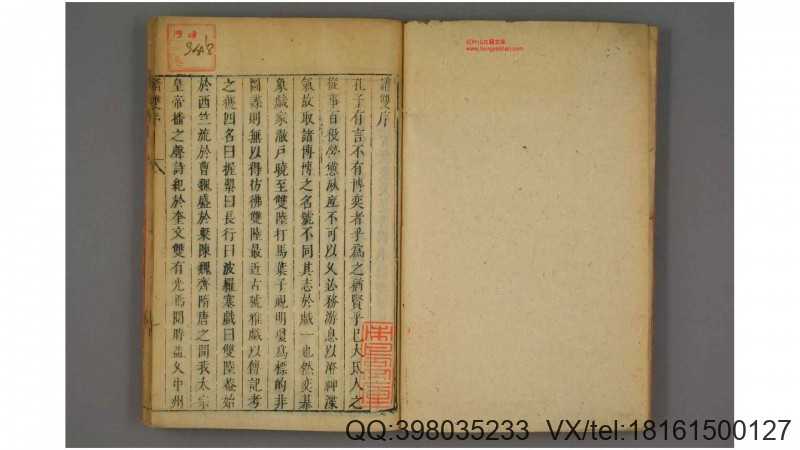 譜雙序
孔子有言不有博奕者乎為之猶賢乎已大氐人之
從事百役勞憊厭產不可以久必務游息以濟神深
氣故取諸博博之名號不同其志於戲一也然奕棊
象戲家澈戶曉至雙陸打馬葉子視明瓊為標的非
圖譜則無以得彷彿雙陸最近古號雅戲以傳記考
之獲四名曰握槊曰長行曰波羅塞戲曰雙陸蓋始
於西竺流於曹魏盛於梁陳魏齊隋唐之間我太宗
皇帝播之聲詩紀於奎文雙有光焉閱時益久中州
譜雙序
一
QQ:398035233 VX/tel:18161500127